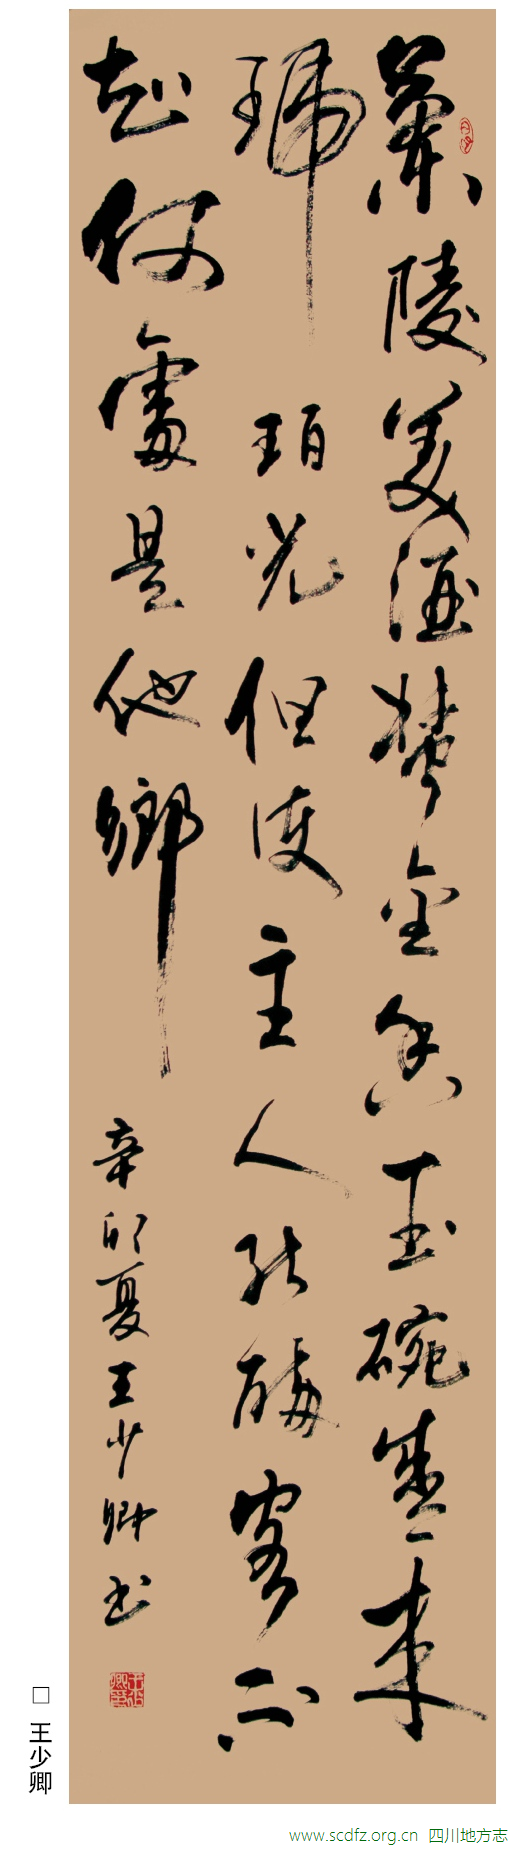 蘭陵美酒鬱金香玉碗盛来
琥珀光但使主人能醉客不
知何處是他鄉
辛卯夏王少卿书
□ 王少卿
www.scdfz.org.cn 四川地方志